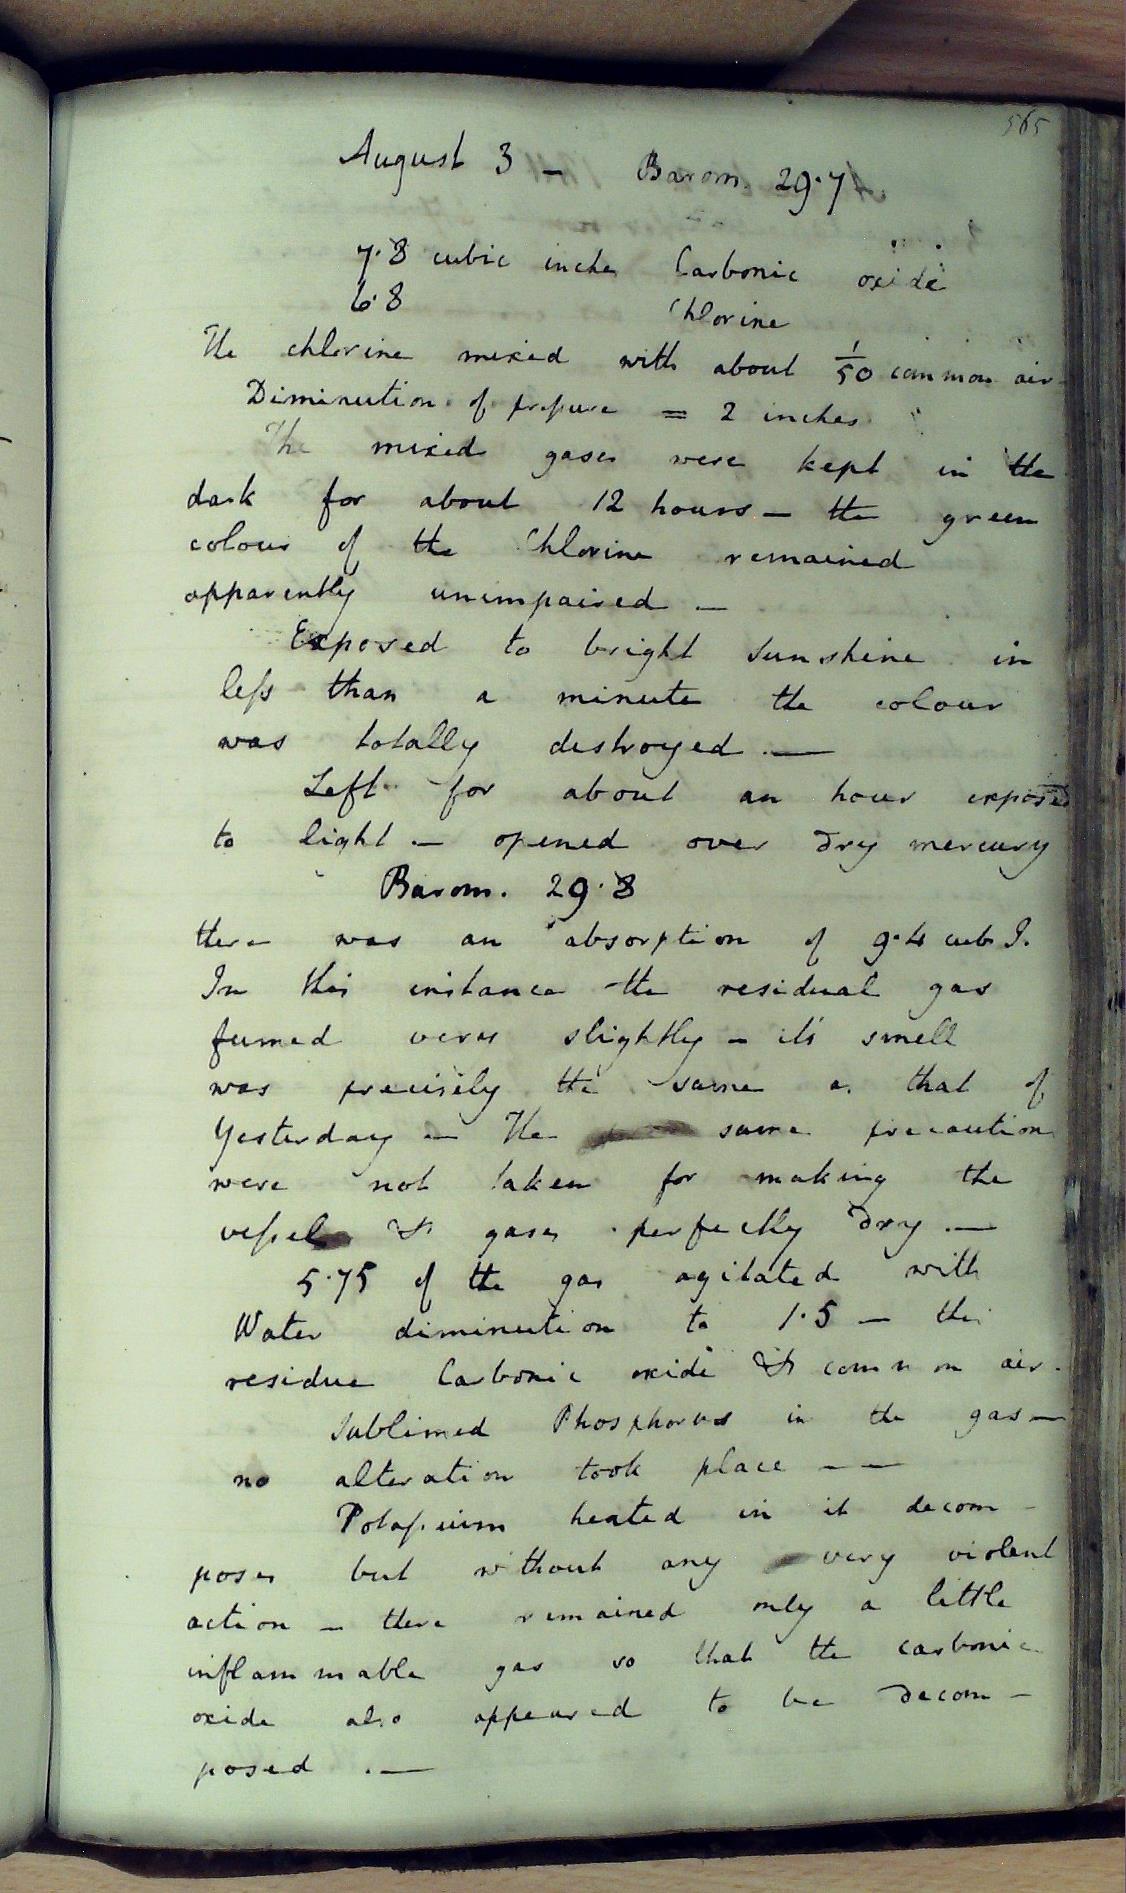 565
August 3 — Barom. 29.7
7.8 cubic inches Carbonic oxide
6.8 Chlorine
The chlorine mixed with about 1/50 common air—
Diminution of prefsure = 2 inches
The mixed gases were kept in the
dark for about 12 hours — the green
colour of the Chlorine remained
apparently unimpaired —
Exposed to bright sunshine in
lefs than a minute the colour
was totally destroyed. —
Left for about an hour exposed
to light — opened over dry mercury
Barom. 29.8
there was an absorption of 9.4 cub I.
In this instance the residual gas
fumed very slightly — its smell
was precisely the same as that of
Yesterday — The same precaution
were not taken for making the
vefsel & gases perfectly dry. —
5.75 of the gas agitated with
Water diminution to 1.5 — the
residue Carbonic oxide & common air.
Sublimed Phosphorus in the gas —
no alteration took place — —
Potafsium heated in it decom -
poses but without any very violent
action — there remained only a little
inflammable gas so that the carbonic
oxide also appeared to be decom -
posed . —